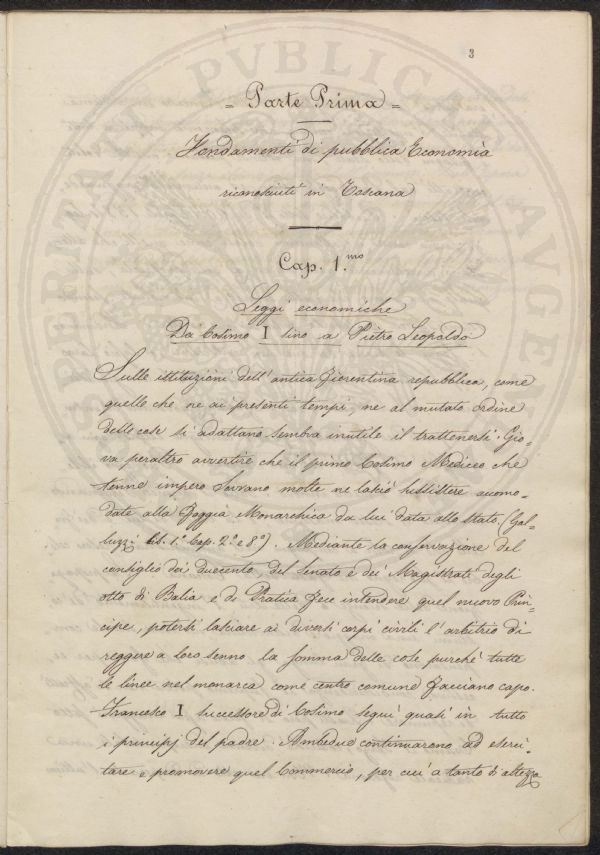 3
= Parte Prima =
Fondamenti di pubblica Economia
riconosciuti in Toscana
Cap. 1.mo
Leggi economiche
Da Cosimo I sino a Pietro Leopoldo
Sulle istituzioni dell'antica fiorentina repubblica, come
quelle che ne ai presenti tempi, ne al mutato ordine
delle cose si adattano sembra inutile il trattenersi. Gio-
va peraltro avvertire che il primo Cosimo Mediceo che
tenne impero Sovrano molte ne lasciò sussistere accomo-
date alla foggia Monarchica da lui data allo stato. (Gal-
luzzi Lib. 1.° Cap. 2.° e 8.°). Mediante la conservazione del
consiglio dei duecento, del Senato e dei Magistrati degli
otto di Balia e di Pratica fece intendere quel nuovo Prin-
cipe, potersi lasciare ai diversi corpi civili l'arbitrio di
reggere a loro senno la somma delle cose purchè tutte
le linee nel monarca come centro comune facciano capo.
Francesco I successore di Cosimo seguì quasi in tutto
i principj del padre. Ambedue continuarono ad eserci-
tare e promovere quel Commercio, per cui a tanto di altezza
SPQR
PUBLICAE
AUGE